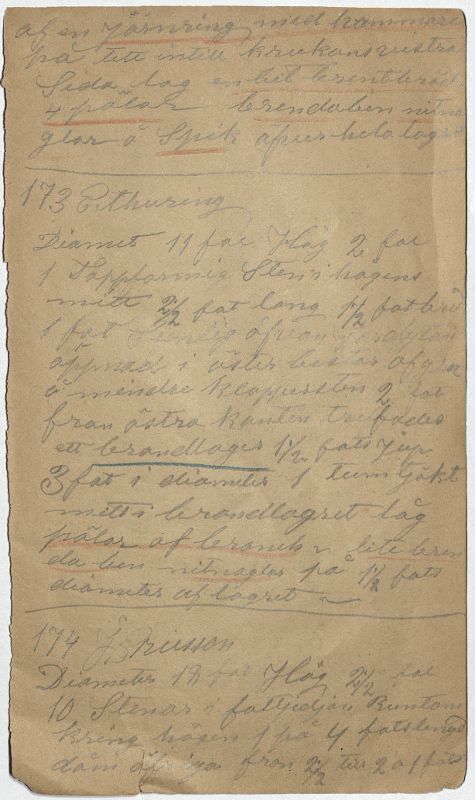 af en järnring med hammare
på tett intill krukans vestra
Sida log en bit brent bräd
4 pålar brenda ben nitna
glar å Spik öfver hela lagret
173 E. thuring
Diamet 11 fot Hög 2 fot
1 Tappformig Sten i högens
mitt 2 1/2 fot lång 1 1/2 fot bre
1 fot öfvan
öppnad i öster bestar af
å mendre klappersten 2 fot
fran östra kanten trefades
ett brandlager 1 1/2 fots jup
3 fot i diameter 1 tum tjokt
mett i brandlagret låg
pålar af brons lite bren
da ben nitnaglar på 1 1/2 fots
diameter af lagret
174
Diameter 18 fot Hög 2 1/2 fot
10 Stenar i fottjedjan Runtom
kring högen 1 på 4 fots lengd
dom öfriga fron 2 1/2 till 2 a 1 fots